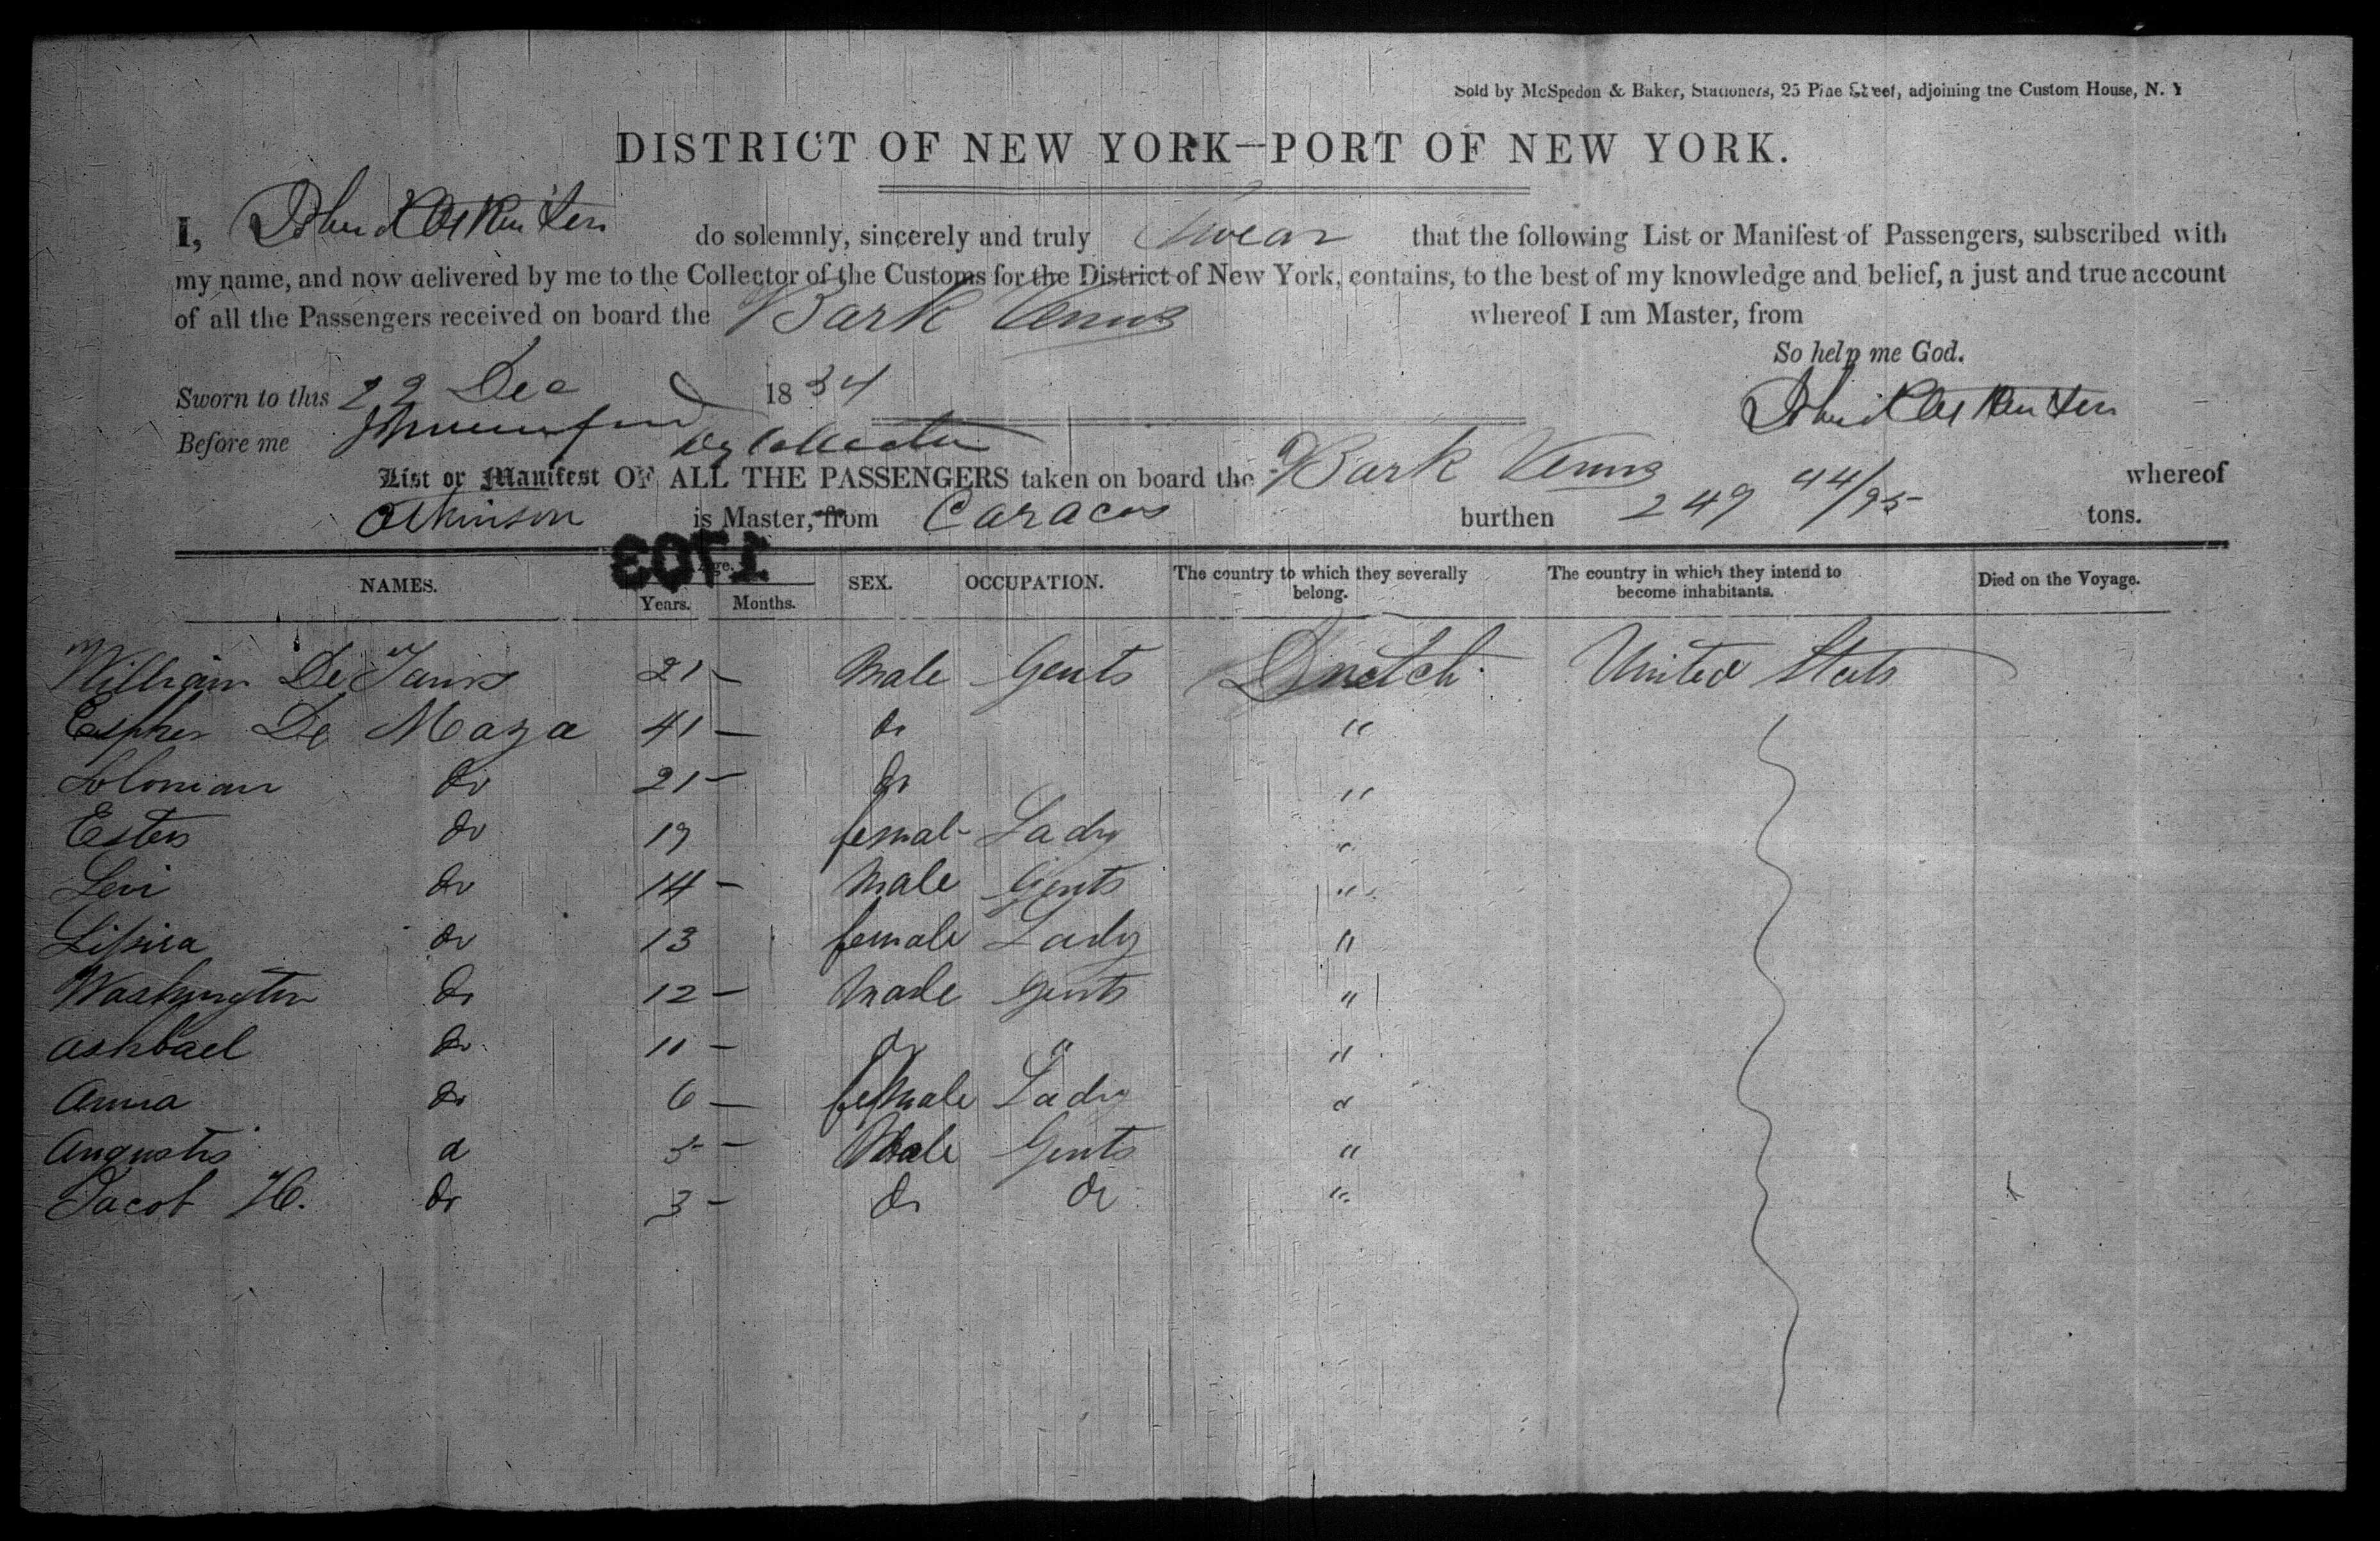 Sold by McSpedon & Baker, Stationers, 25 Pine Street, adjoining the Custom House, N. Y
DISTRICT OF NEW YORK—PORT OF NEW YORK.
I, John Atkinson do solemnly, sincerely and truly Swear that the following List or Manifest of Passengers, subscribed with
my name, and now delivered by me to the Collector of the Customs for the District of New York, contains, to the best of my knowledge and belief, a just and true account
of all the Passengers received on board the Bark Venus whereof I am Master, from
So help me God.
Sworn to this 22 Dec 1834
John Atkinson
Before me Dy Collector
List or Manifest OF ALL THE PASSENGERS taken on board the Bark Venus whereof
Atkinson is Master, from Caracas burthen 249 44/95 tons.
1703
NAMES. Age. Years. Months. SEX. OCCUPATION. The country to which they severally belong. The country in which they intend to become inhabitants. Died on the Voyage.
William De 21 — Male Gents Dutch United Stats
De Maza 41 — do "
Soloman do 21 — do "
Esters do 19 femal Lady "
Levi do 14 — Male Gents "
do 13 female Lady "
Washington do 12 — Male Gents "
Ashbael do 11 — do " "
Anna do 6 — female Lady "
Augustis do 5 — Male Gents "
Jacob H. do 3 — do do "